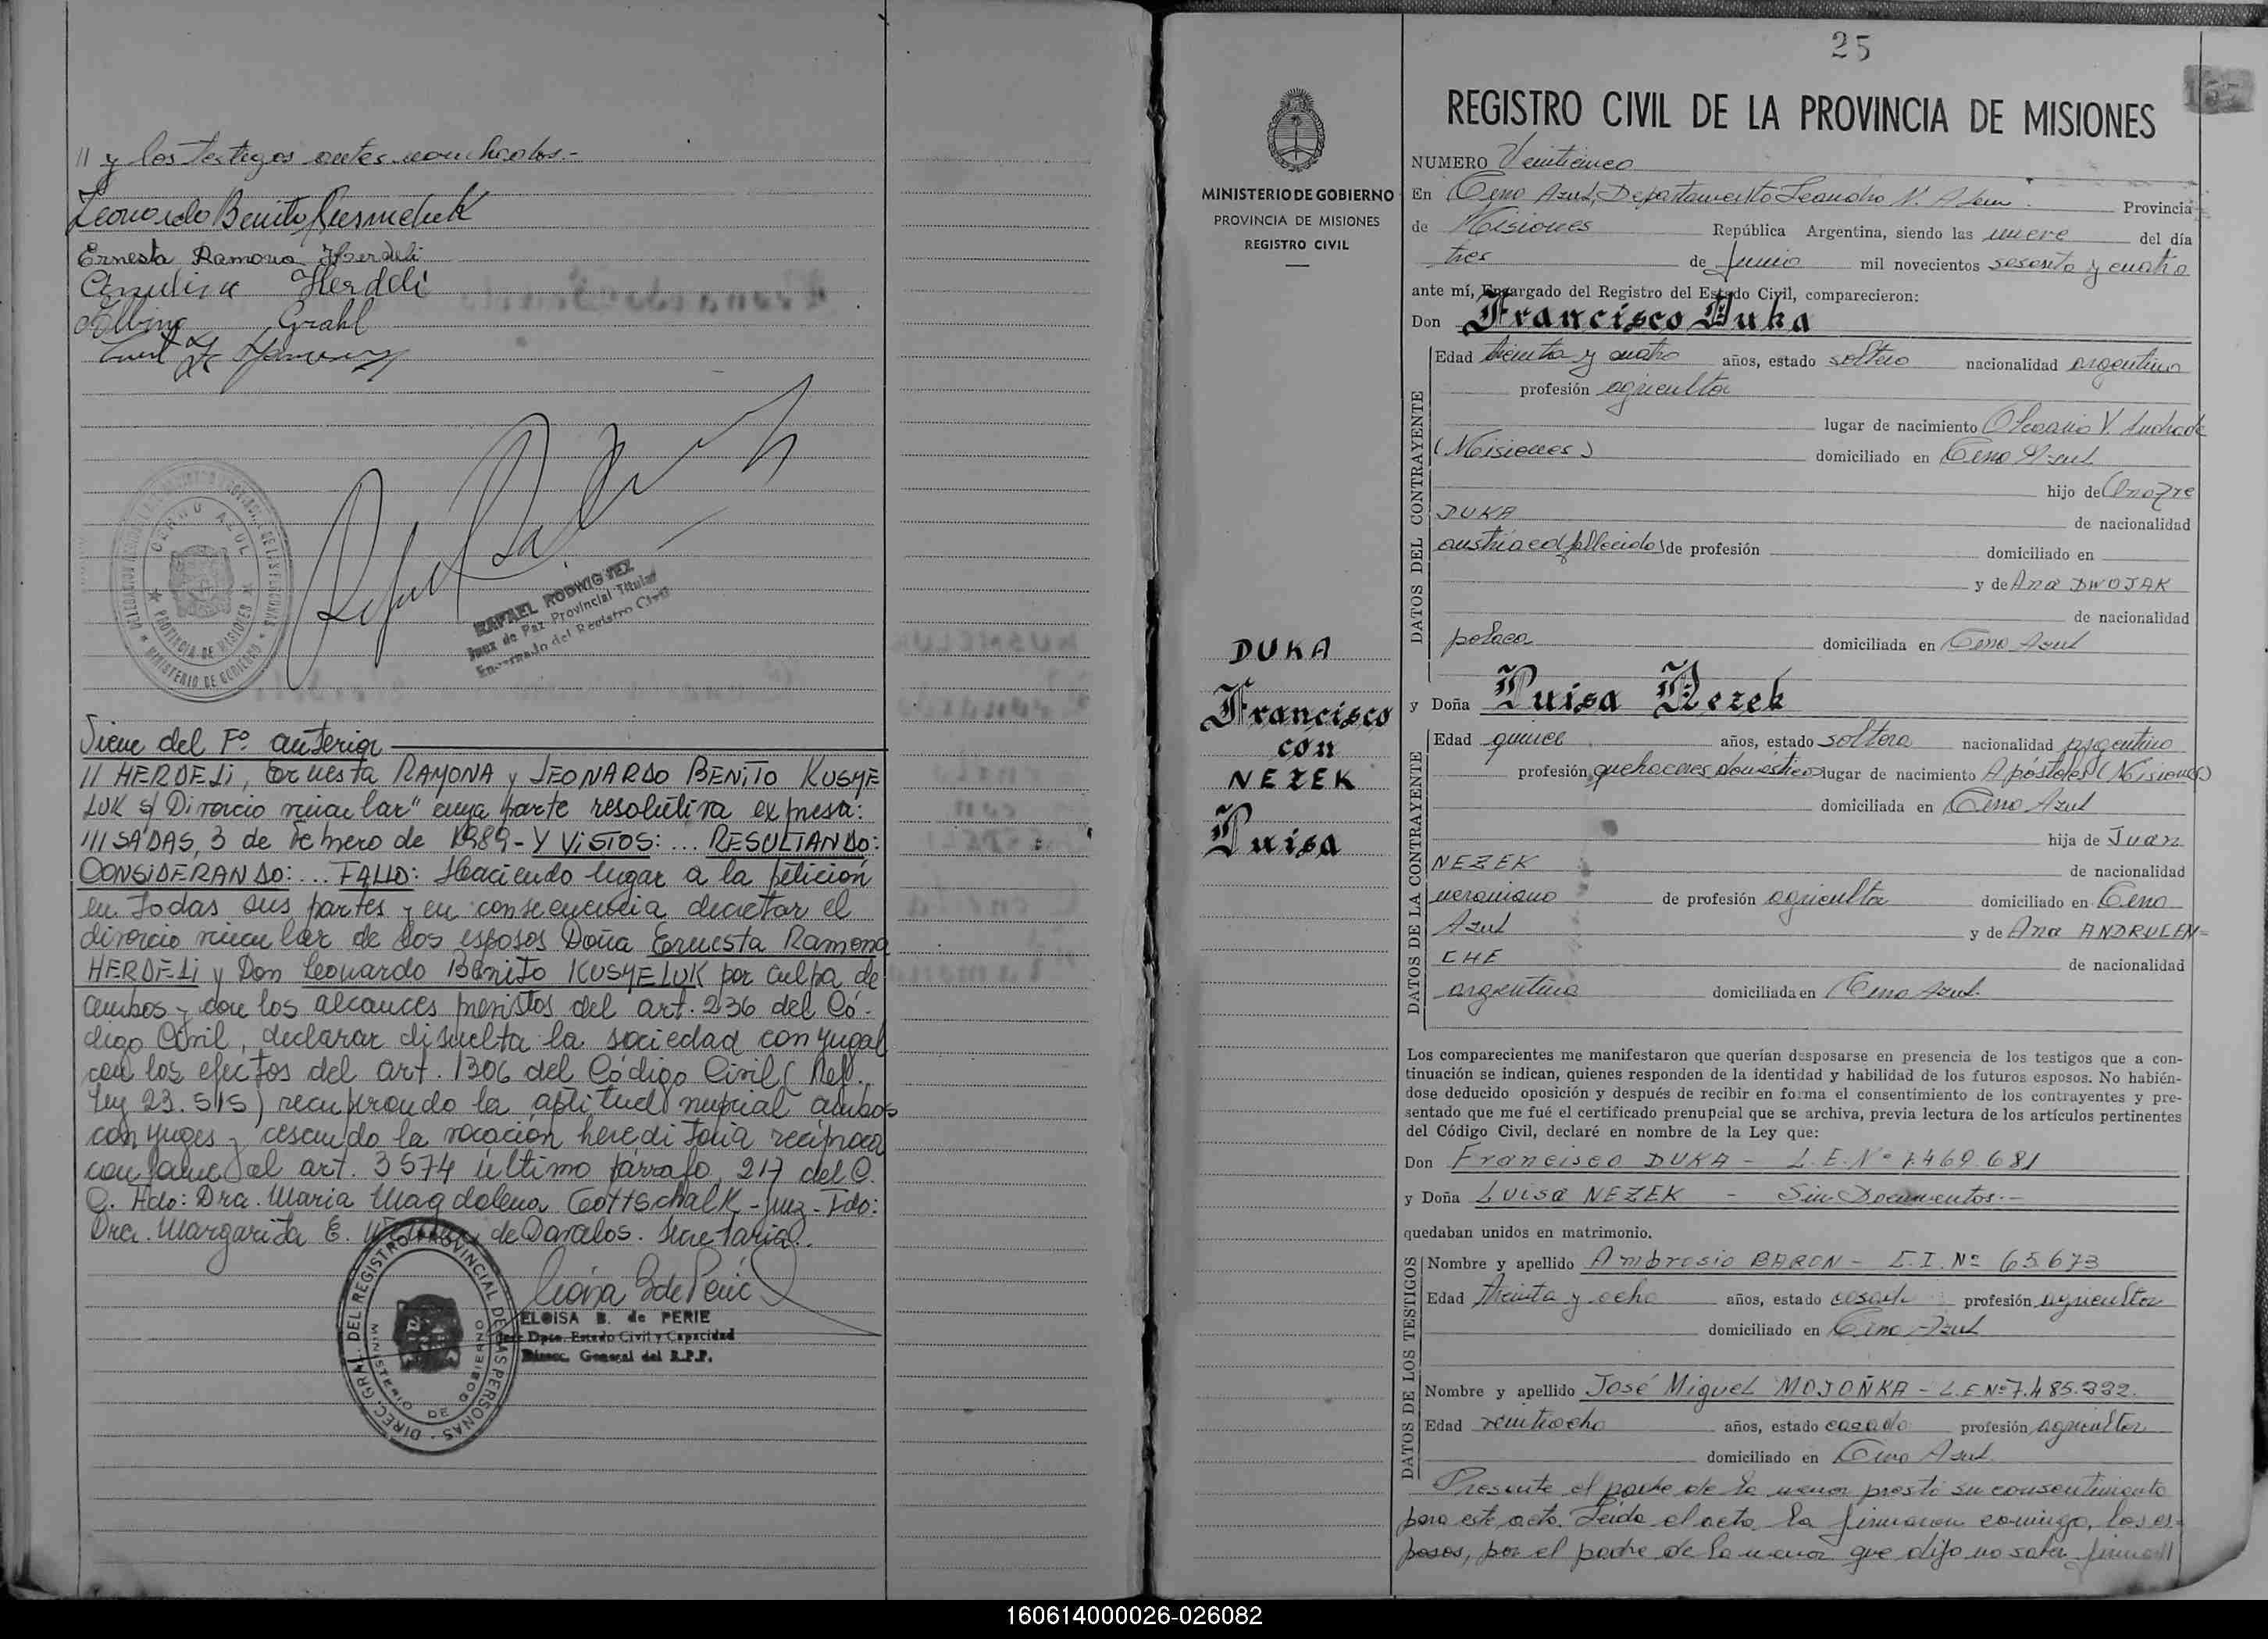 // y los testigos antes nombrados.-
Leonardo Benito Kusmeluk
Ernesta Ramona Herdeli
Herdeli
Albino Grahl
CERRO AZUL
PROVINCIA DE MISIONES
MINISTERIO DE GOBIERNO
RAFAEL RODRIGUEZ
Juez de Paz Provincial Titular
Encargado del Registro Civil
Viene del Fº anterior
// HERDELi, Ernesta RAMONA y LEONARDO BENiTO KUSME
LUK s/ Divorcio vincular" cuya parte resolutiva expresa:
///SADAS, 3 de Febrero de 1989 - Y ViSTOS: ... RESULTANDO:
CONSiDERANDO: ... FALLO: Haciendo lugar a la petición
en todas sus partes y en consecuencia decretar el
divorcio vincular de los esposos Doña Ernesta Ramona
HERDELi y Don Leonardo Benito KUSMELUK por culpa de
ambos y con los alcances previstos del art. 236 del Có-
digo Civil, declarar disuelta la sociedad conyugal
con los efectos del art. 1306 del Código Civil (Ref.
Ley 23.515) recuperando la aptitud nupcial ambos
conyuges y cesando la vocación hereditaria recíproca
conforme al art. 3574 último párrafo, 217 del C.
C. Fdo: Dra. Maria Magdalena Gottschalk - Juez - Fdo:
Dra. Margarita E. de Darcelos. Secretaria.
DIREC. GRAL. DEL REGISTRO PROVINCIAL DE LAS PERSONAS
MINISTERIO DE GOBIERNO
ELOISA B. de PERIE
Jefe Dpto. Estado Civil y Capacidad
Direcc. General del R.P.P.
25
MINISTERIO DE GOBIERNO
PROVINCIA DE MISIONES
REGISTRO CIVIL
DUKA
Francisco
con
NEZEK
Luisa
REGISTRO CIVIL DE LA PROVINCIA DE MISIONES
NUMERO Veinticinco
En Cerro Azul, Departamento Leandro N. Alem. Provincia
de Misiones República Argentina, siendo las nueve del día
tres de Junio mil novecientos sesenta y cuatro
ante mí, Encargado del Registro del Estado Civil, comparecieron:
Don Francisco Duka
DATOS DEL CONTRAYENTE
Edad treinta y cuatro años, estado soltero nacionalidad argentino
profesión agricultor
lugar de nacimiento Olegario V. Andrade
(Misiones) domiciliado en Cerro Azul
hijo de Onofre
DUKA de nacionalidad
austriaco (fallecido) de profesión domiciliado en
y de Ana DWOJAK
de nacionalidad
polaca domiciliada en Cerro Azul
y Doña Luisa Nezek
DATOS DE LA CONTRAYENTE
Edad quince años, estado soltera nacionalidad argentina
profesión quehaceres domésticos lugar de nacimiento Apóstoles (Misiones)
domiciliada en Cerro Azul
hija de Juan
NEZEK de nacionalidad
ucraniano de profesión agricultor domiciliado en Cerro
Azul y de Ana ANDRUCEN=
CHE de nacionalidad
argentina domiciliada en Cerro Azul.
Los comparecientes me manifestaron que querían desposarse en presencia de los testigos que a con-
tinuación se indican, quienes responden de la identidad y habilidad de los futuros esposos. No habién-
dose deducido oposición y después de recibir en forma el consentimiento de los contrayentes y pre-
sentado que me fué el certificado prenupcial que se archiva, previa lectura de los artículos pertinentes
del Código Civil, declaré en nombre de la Ley que:
Don Francisco DUKA - L.E. Nº 7.469.681
y Doña Luisa NEZEK - Sin Documentos.-
quedaban unidos en matrimonio.
DATOS DE LOS TESTIGOS
Nombre y apellido Ambrosio BARON - C.I. Nº 65.673
Edad treinta y ocho años, estado casado profesión agricultor
domiciliado en Cerro Azul
Nombre y apellido José Miguel MOJOÑKA - L.E. Nº 7.485.332.
Edad veintiocho años, estado casado profesión agricultor
domiciliado en Cerro Azul.
Presente el padre de la menor prestó su consentimiento
para este acto. Leída el acta, la firmaron conmigo, los es=
posos, por el padre de la menor que dijo no saber firmar//
160614000026-026082